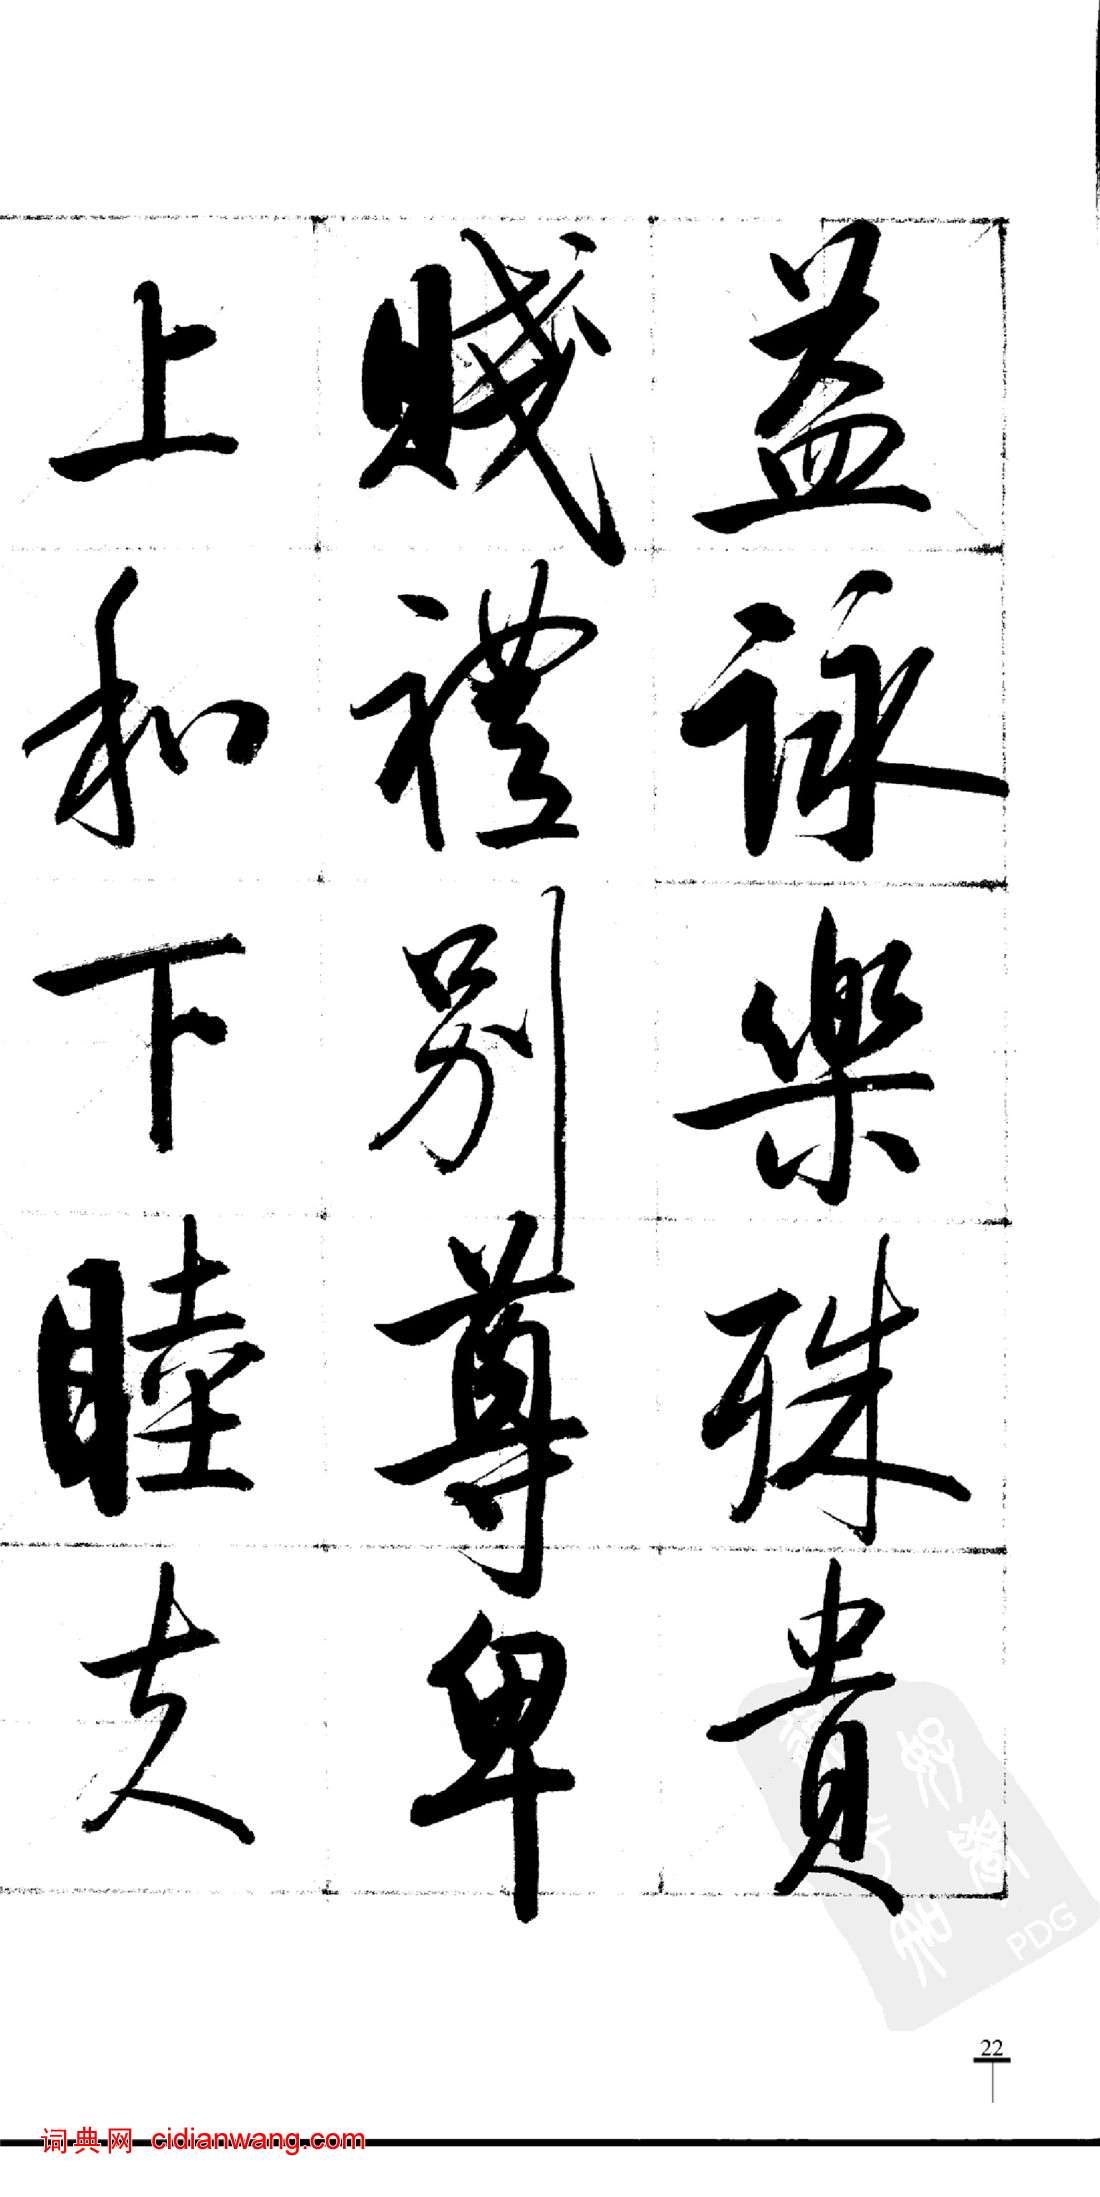 益詠樂殊貴
賤禮別尊卑
上和下睦夫
22
词典网 cidianwang.com
PDG